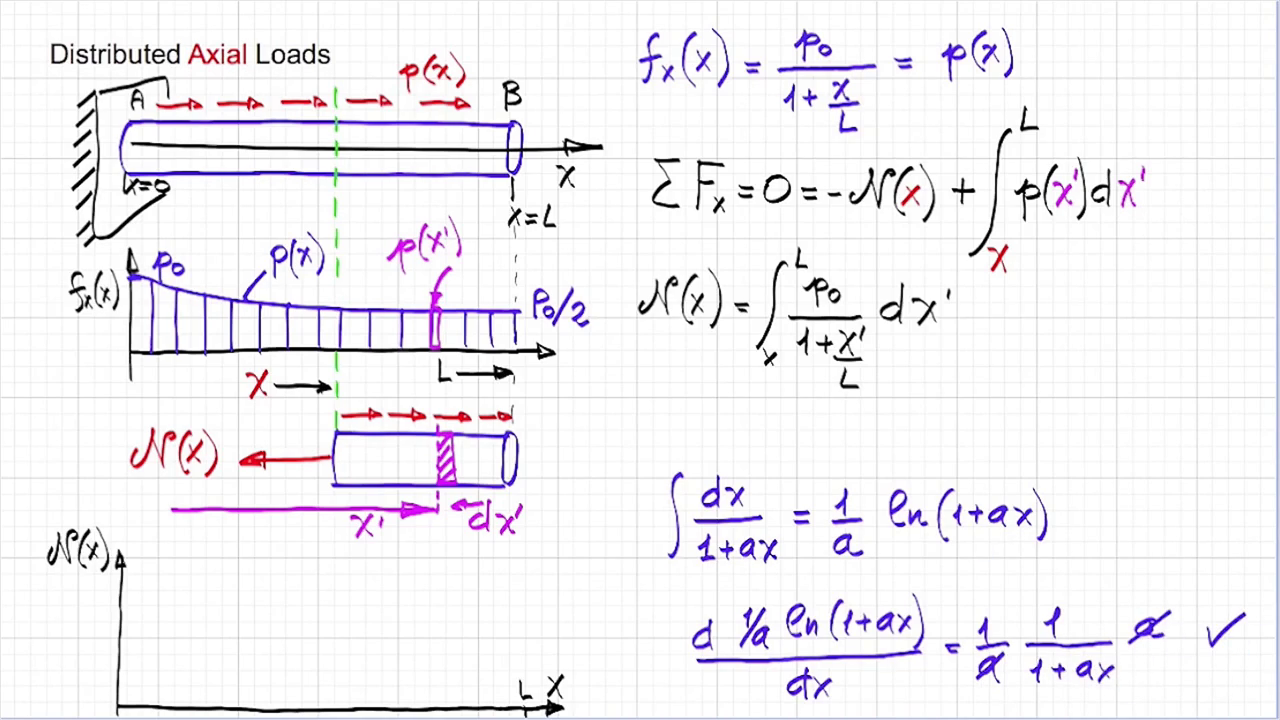 Distributed Axial Loads
p(x)
A
B
x=0
x
x=L
f_x(x)
p_0
p(x)
p(x')
p_0/2
x
L
N(x)
x'
dx'
N(x)
L x
f_x(x) = p_0 / (1 + x/L) = p(x)
∑F_x = 0 = -N(x) + ∫_x^L p(x')dx'
N(x) = ∫_x^L p_0 / (1 + x'/L) dx'
∫ dx / (1+ax) = 1/a ln(1+ax)
d 1/a ln(1+ax) / dx = 1/a 1/(1+ax) a ✓